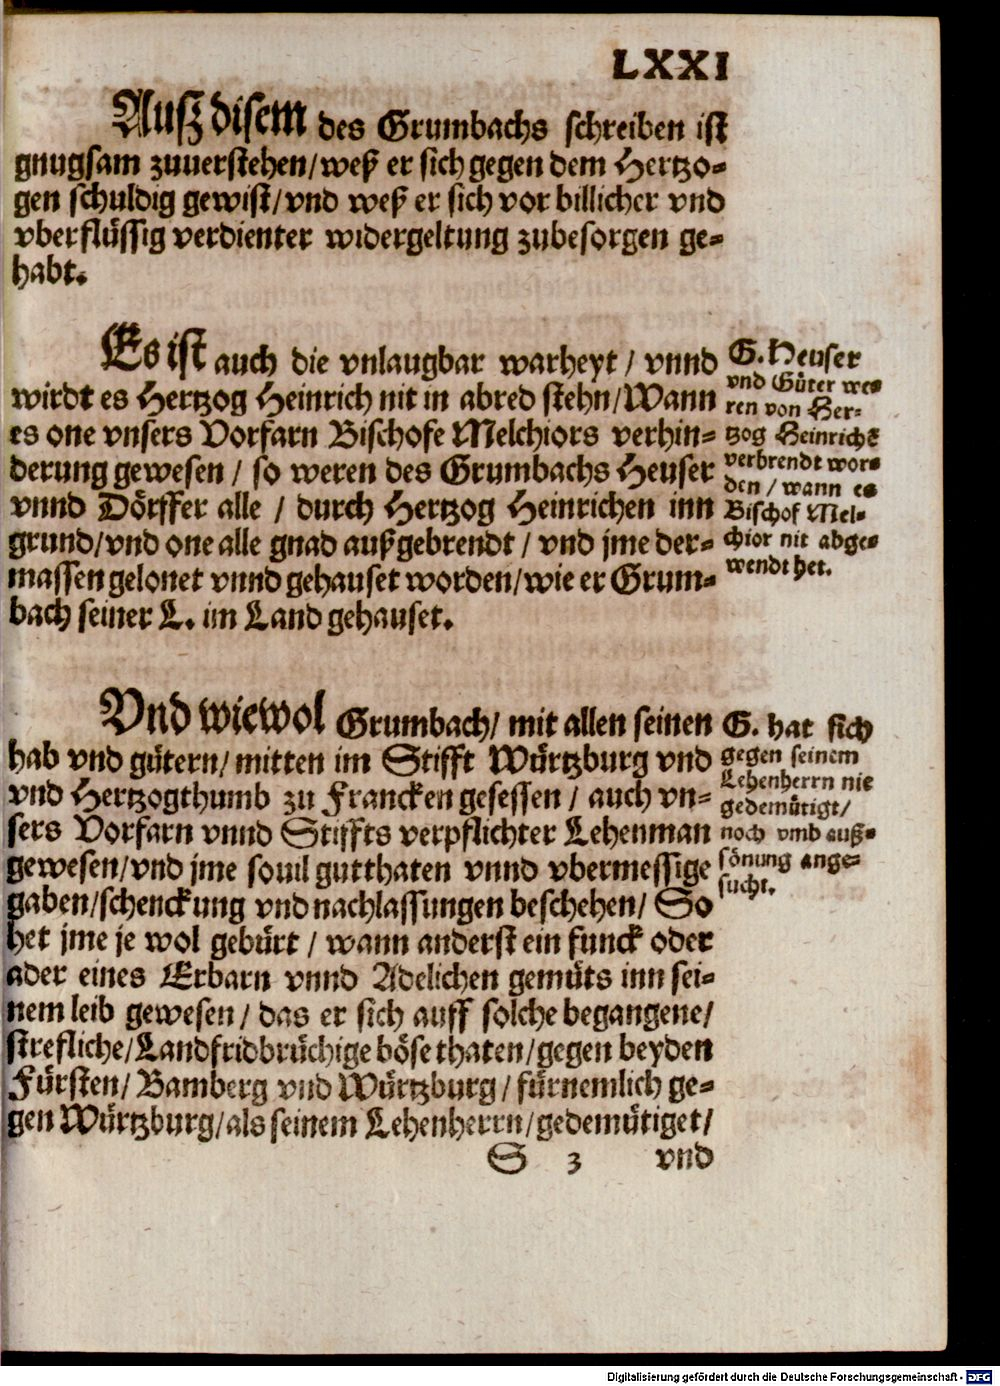 LXXI
Auß disem des Grumbachs schreiben ist
gnugsam zuuerstehen/weß er sich gegen dem Hertzo-
gen schuldig gewist/vnd weß er sich vor billicher vnd
vberflüssig verdienter widergeltung zubesorgen ge-
habt.
Es ist auch die vnlaugbar warheyt / vnnd
wirdt es Hertzog Heinrich nit in abred stehn/Wann
es one vnsers Vorfarn Bischofe Melchiors verhin-
derung gewesen / so weren des Grumbachs Heuser
vnnd Dörffer alle / durch Hertzog Heinrichen inn
grund/vnd one alle gnad außgebrendt / vnd jme der-
massen gelonet vnnd gehauset worden/wie er Grum-
bach seiner L. im Land gehauset.
G. Heuser
vnd Güter we-
ren von Her-
tzog Heinrichē
verbrendt wor-
den / wann es
Bischof Mel-
chior nit abge-
wendt het.
Vnd wiewol Grumbach/ mit allen seinen
hab vnd gütern/ mitten im Stifft Würtzburg vnd
vnd Hertzogthumb zu Francken gesessen / auch vn-
sers Vorfarn vnnd Stiffts verpflichter Lehenman
gewesen/vnd jme souil gutthaten vnnd vbermessige
gaben/schenckung vnd nachlassungen beschehen/ So
het jme je wol gebürt / wann anderst ein funck oder
ader eines Erbarn vnnd Adelichen gemüts inn sei-
nem leib gewesen / das er sich auff solche begangene/
strefliche/Landfridbrüchige böse thaten/gegen beyden
Fürsten/ Bamberg vnd Würtzburg / fürnemlich ge-
gen Würtzburg/als seinem Lehenherrn/gedemütiget/
G. hat sich
gegen seinem
Lehenherrn nie
gedemütigt/
noch vmb auß-
sönung ange-
sucht.
S 3 vnd
Digitalisierung gefördert durch die Deutsche Forschungsgemeinschaft - DFG